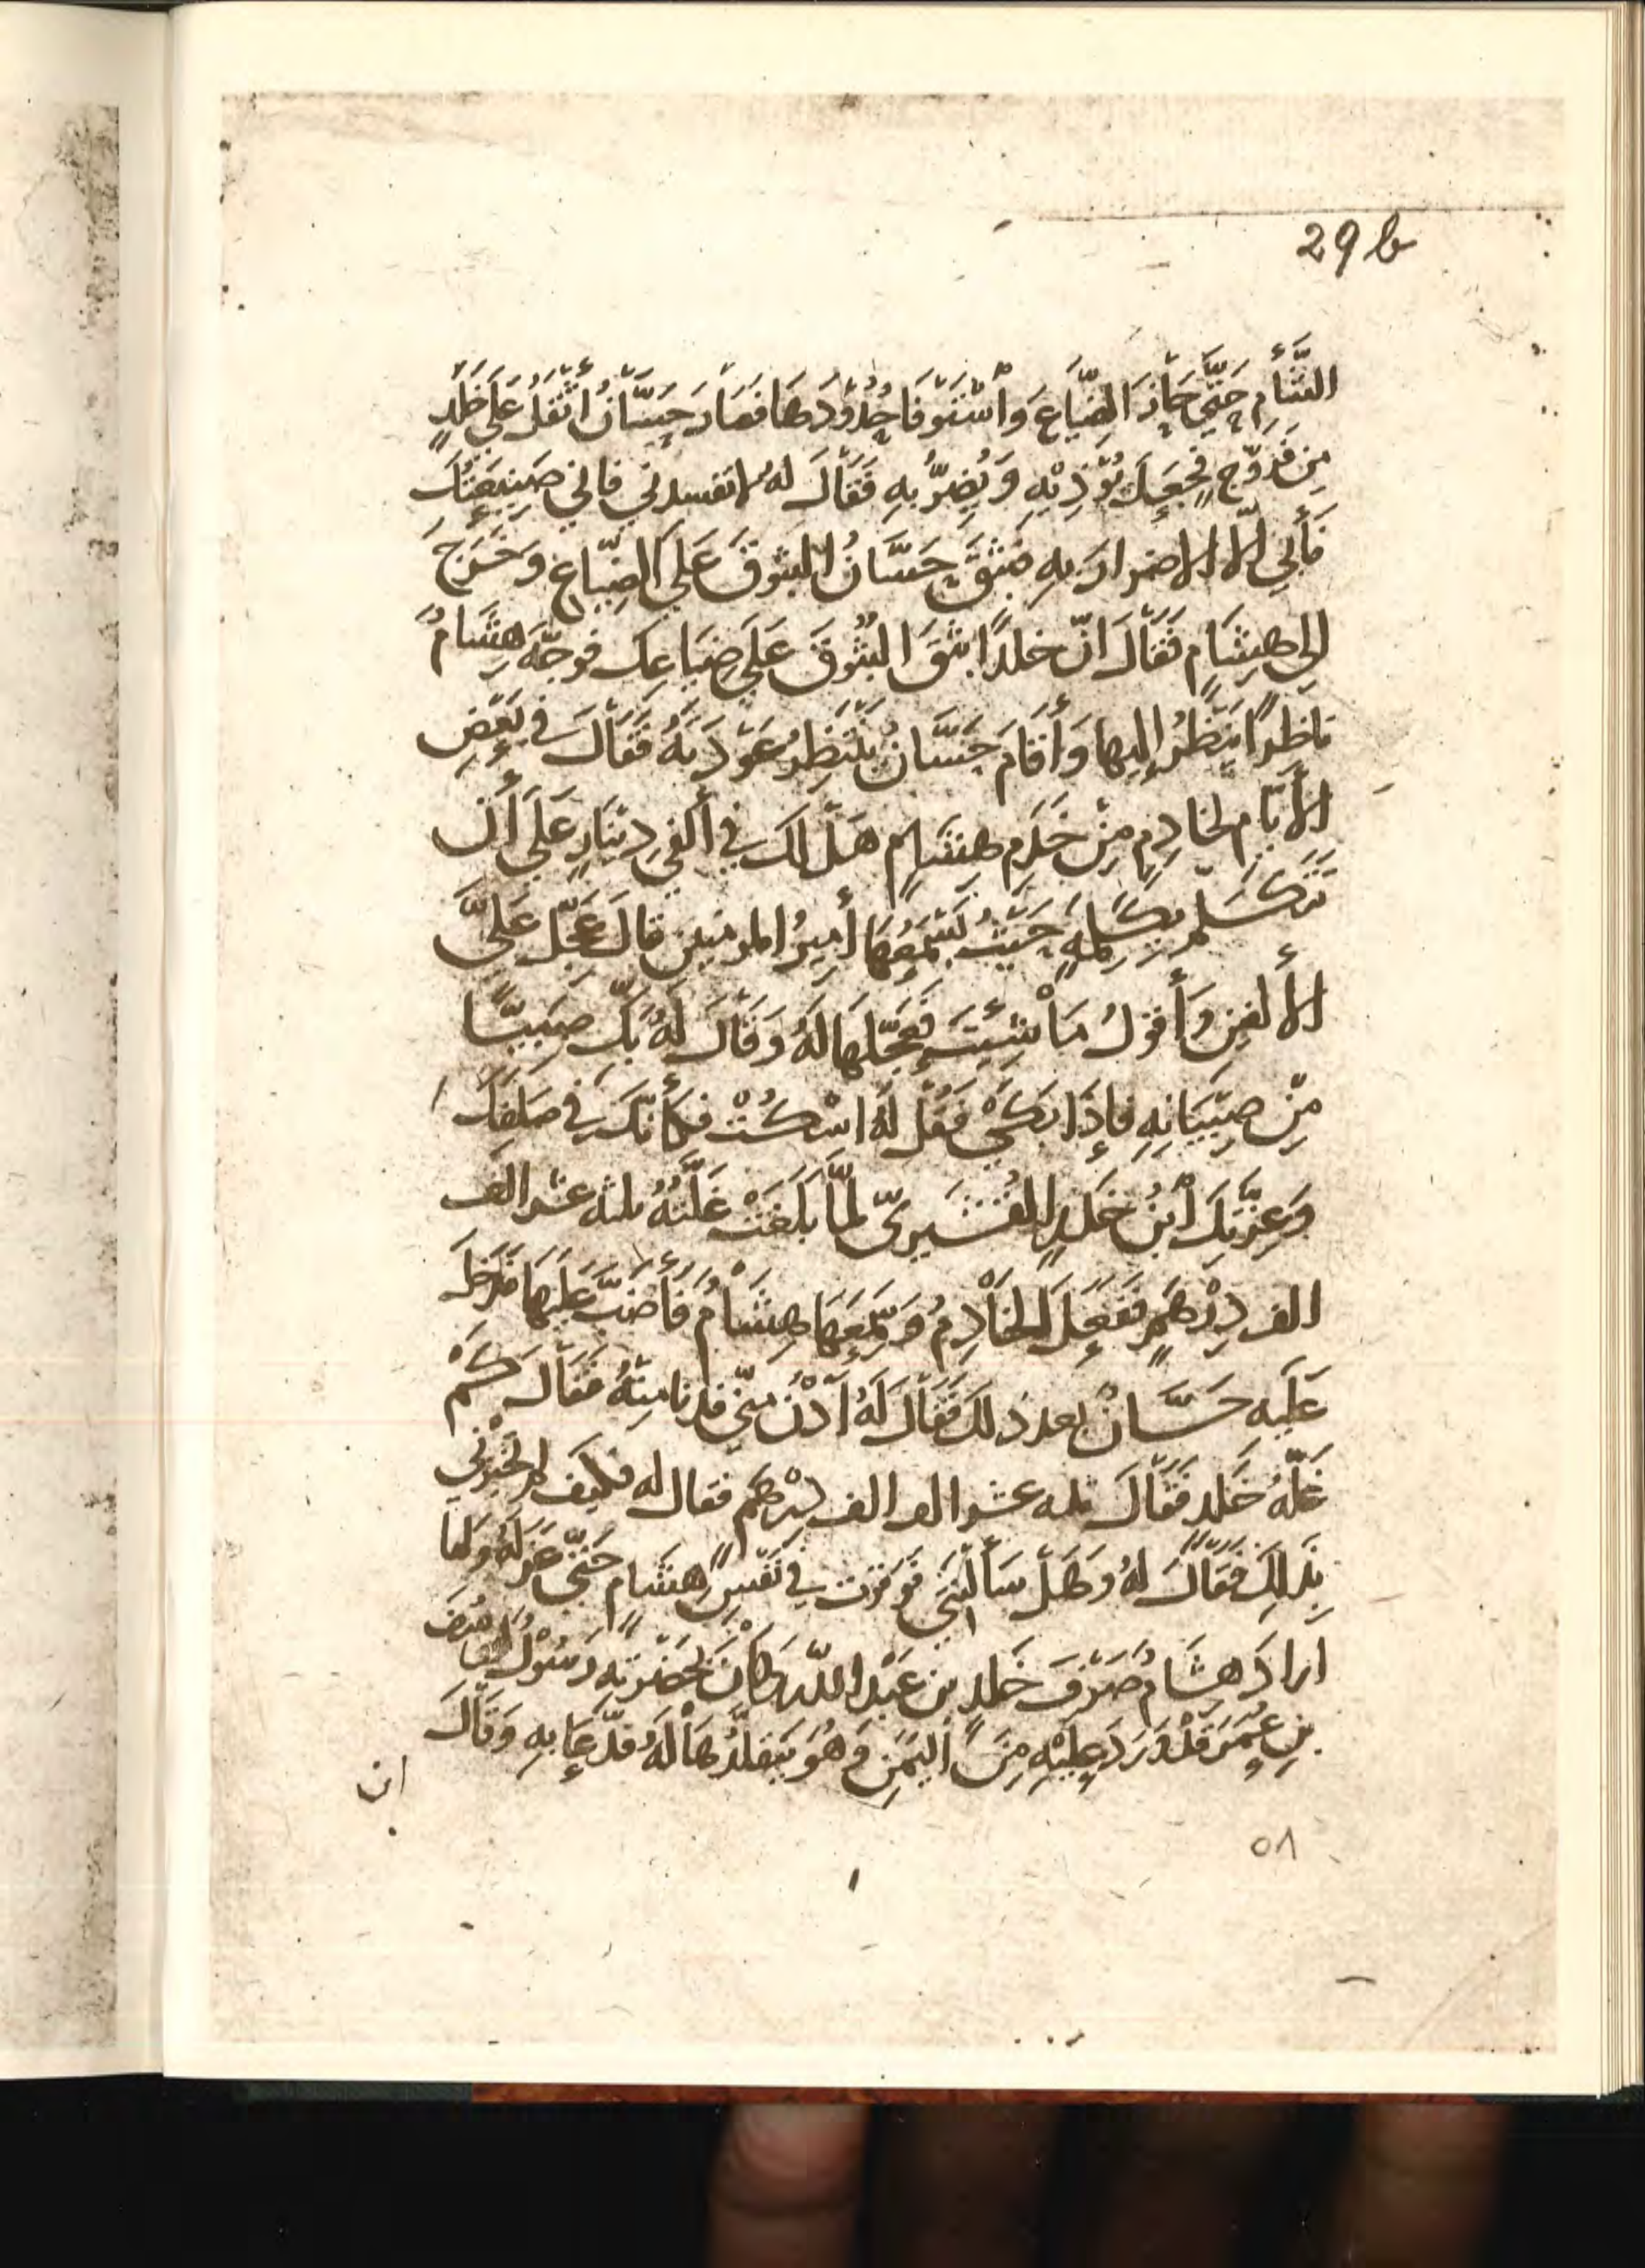 29 b
الشَّأْمِ حَتَّى حَازَ الضِّيَاعَ وَاسْتَوفَا حُدُوْدَهَا فصَارَ حَسَّانُ أَثْقَلَ عَلَى خَلَدٍ
مِن فَرُّوْجٍ فجَعَلَ يُؤْذِيْهِ وَيُضِرُّ بِهِ فَقَالَ لهُ لا تفسدني فاني صَنِيعَتُكَ
فَأَبَي الّا الاضرارَ بِهِ فبَثَقَ حَسَّانُ البُثوقَ عَلَى الضِّيَاعِ وَخَرَجَ
إلى هِشَامٍ فَقَالَ انّ خلدًا بثَقَ البُثُوقَ عَلَى ضِيَاعِكَ فوَجَّهَ هِشَامُ
نَاظِرًا يَنْظُرُ إليها وَأَقَامَ حَسَّانُ يَنْتَظِرُ عَوْدَتَهُ فَقَالَ في بَعْضِ
الأَيّامِ لخَادِمٍ مِنْ خَدَمِ هِشَامٍ هَلْ لكَ في أَلفَي دِيْنَارٍ عَلَى أَن
تَتَكَلّمَ بِكَلِمَةٍ حَيْثُ يَسْمَعُهَا أَمِيرُ المومنينَ قالَ عَجِّلْ عَلَيَّ
الألفينِ وَأَقولُ مَا شِئْتَ فعَجَّلَهَا لهُ وَقَالَ لَهُ بَكِّ صَبِيًّا
مِنْ صِبْيَانِهِ فإِذَا بَكَى فَقُلْ لَهُ اسْكُتْ فكَأَنّكَ في صَلَفِكَ
وَعِزِّكَ ابْنُ خَلَدٍ القَسْرِيّ لمَّا بَلَغَتْ غَلَّتُهُ ثلثه عشر الف
الف دِرْهَمٍ ففَعَلَ الخَادِمُ وَسَمِعَهَا هِشَامُ فَأَضَبَّ عَلَيهَا فَدَخَلَ
عَلَيه حَسَّانُ بعد ذلكَ فَقَالَ لَهُ ادْنُ مِنّي فدنا مِنْهُ فَقَالَ كَمْ
غَلّةُ خَلَد فَقَالَ ثلثه عشر الف الف دِرْهَم فقال له فكيف لم تُخْبِرْنِي
بِذَلِكَ فَقَالَ لهُ وَهَلْ سَأَلْتَنِي فوَقَرَت في نَفْسِ هِشَامٍ حَتّى عَزَلَهُ وَلمّا
ارادَ هِشَامُ صَرْفَ خَلدِ بنِ عَبْدِ اللّهِ وَكَانَ بحَضْرَتِهِ رَسُوْلُ ليُوسُفَ
بنِ عُمَرَ قَدْ وَرَدَ عَلَيْهِ مِنَ اليَمَنِ وَهُوَ يَتَقَلَّدُهَا لَهُ فدَعَا بِهِ وَقَالَ
ان
٥٨